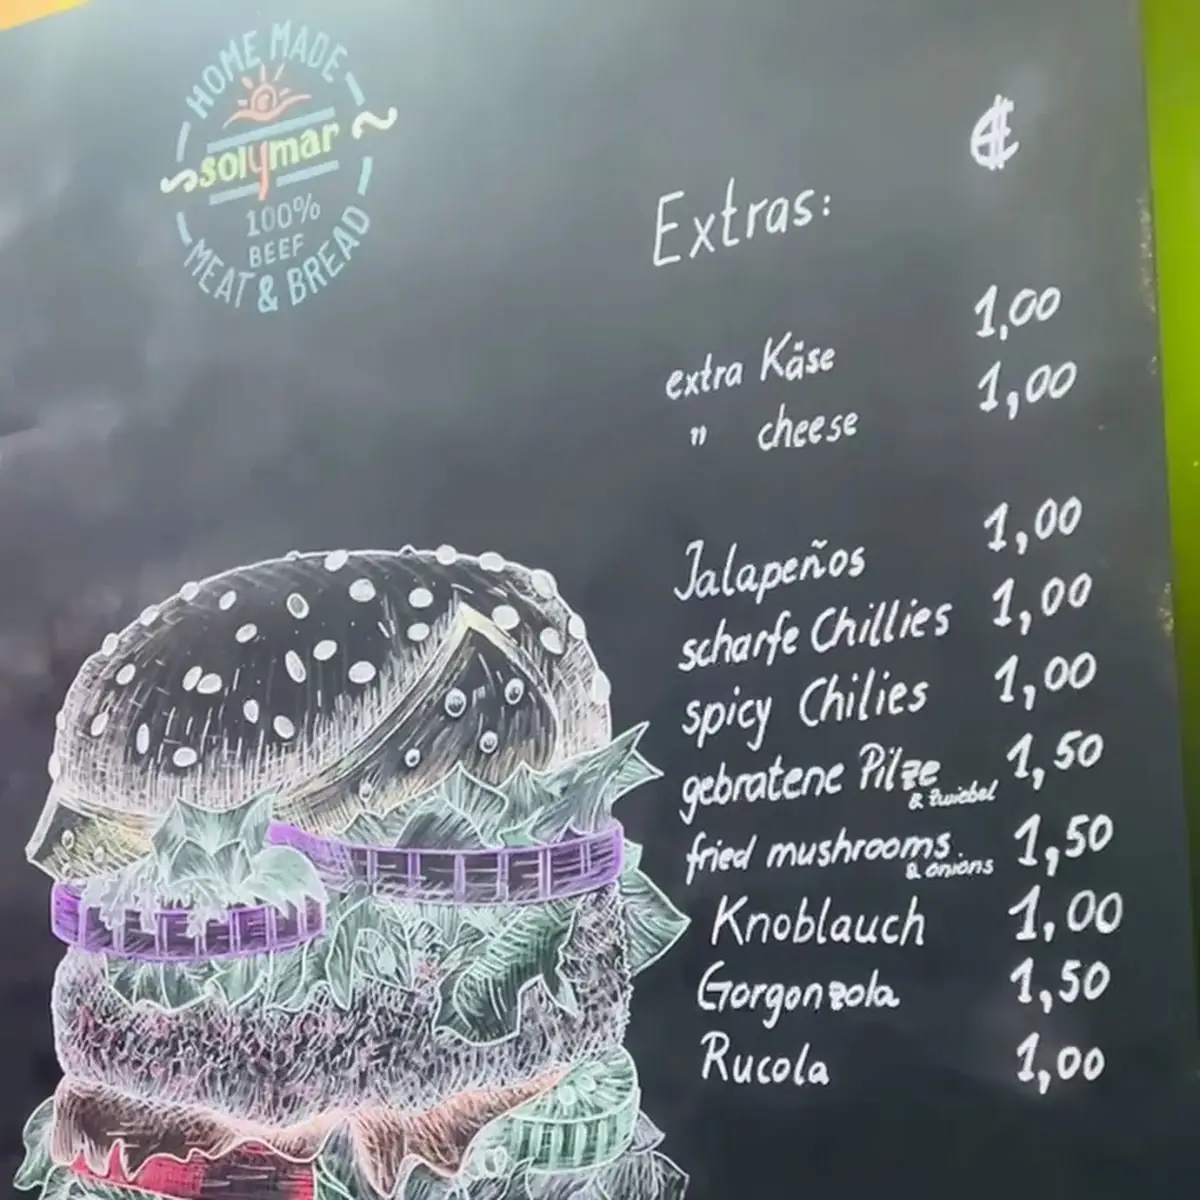 HOME MADE
solymar
100%
BEEF
MEAT & BREAD
€
Extras:
extra Käse 1,00
" cheese 1,00
Jalapeños 1,00
scharfe Chillies 1,00
spicy Chilies 1,00
gebratene Pilze 1,50
& Zwiebel
fried mushrooms 1,50
& onions
Knoblauch 1,00
Gorgonzola 1,50
Rucola 1,00